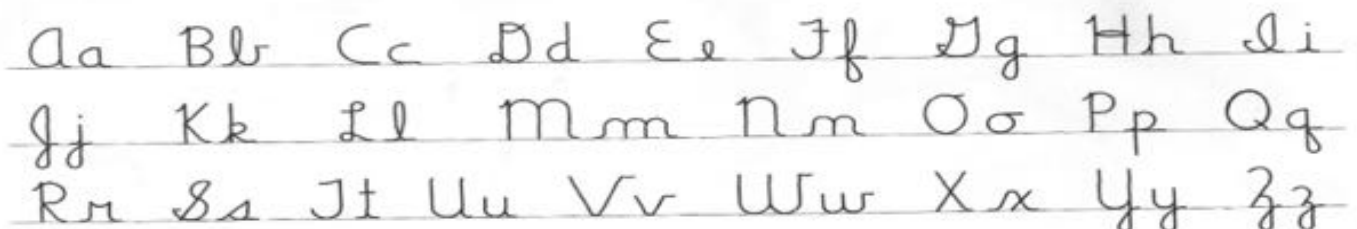 Aa Bb Cc Dd Ee Ff Gg Hh Ii
Jj Kk Ll Mm Nn Oo Pp Qq
Rr Ss Tt Uu Vv Ww Xx Yy Zz